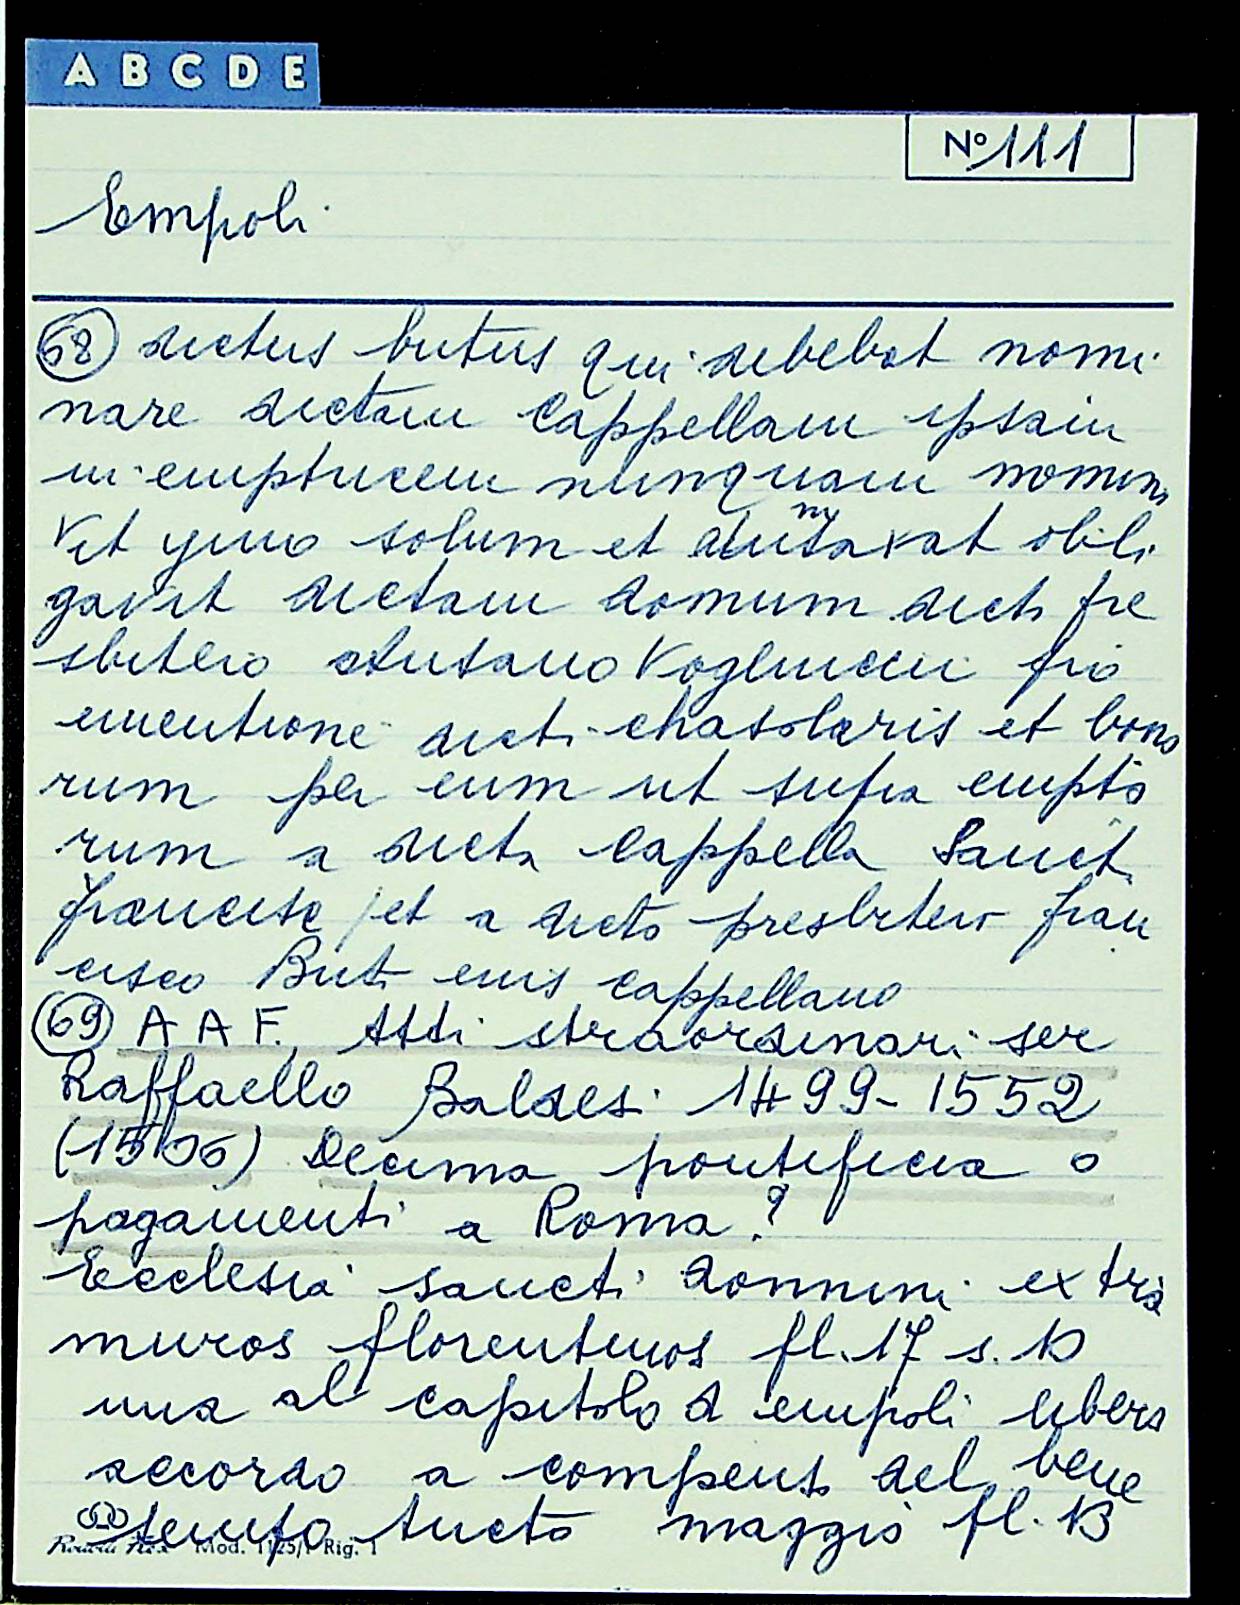 A B C D E
Nº 111
Empoli
68 dictus butus qui debebat nomi
nare dictam Cappellam ipsam
in emptricem nunquam nomina
vit ymo solum et dumtaxat obli
gavit dictam domum dicto pre
sbitero
ementione dicti chasolaris et bono
rum per eum ut supra empto
rum a dicta cappella Sancti
francisci et a dicto presbitero fran
cisco Buti eius cappellano
69 A A F. Atti straordinari ser
Raffaello Baldesi 1499-1552
(1506) Decima pontificia o
pagamenti a Roma?
Ecclesia sancti donnini extra
muros florentinos fl. 17 s. 10
una al capitolo d empoli libera
accordo a compenso del bene
tempo tucto maggio fl. 13
Mod. 1125/1 Rig. 1